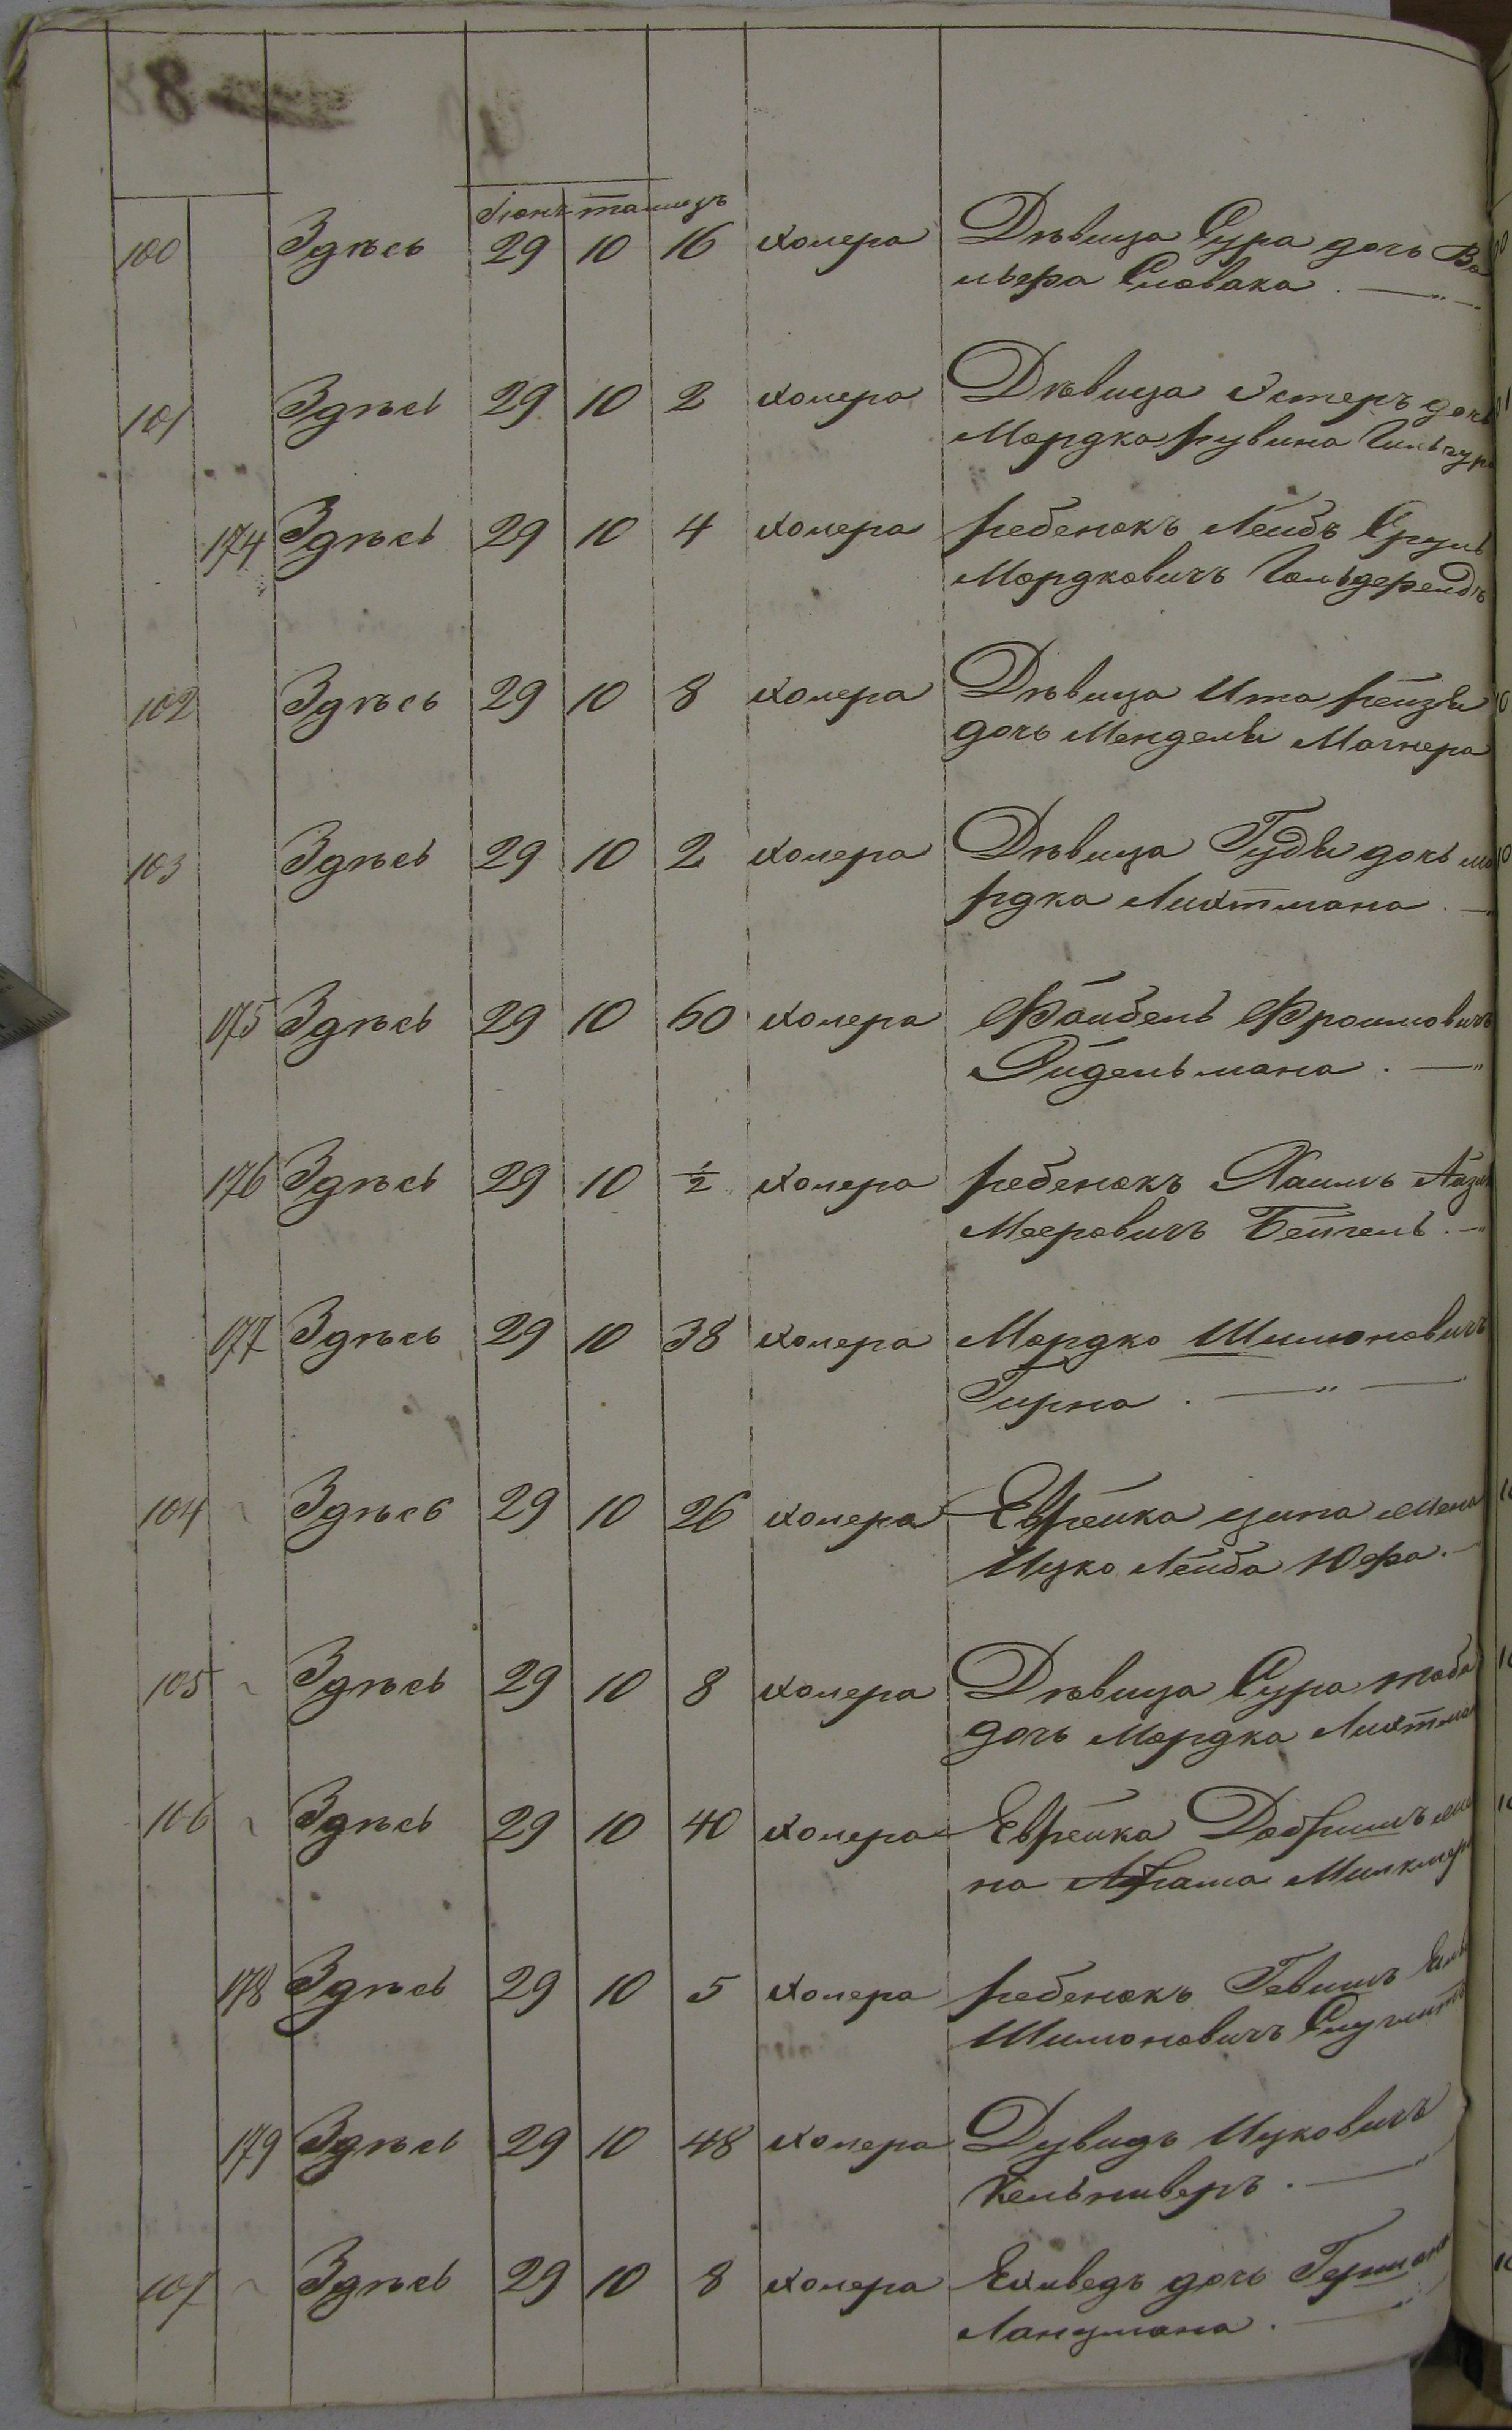 8
Іюнь тамузъ
100 Здѣсь 29 10 16 холера Дѣвица Сура дочь Во
льфа Словака
101 Здѣсь 29 10 2 холера Дѣвица Эстеръ дочь
Мордка Рувина
174 Здѣсь 29 10 4 холера ребенокъ Лейбъ Сруль
Мордковичъ
102 Здѣсь 29 10 8 холера Дѣвица Ита Рейзя
дочь Менделя Магнера
103 Здѣсь 29 10 2 холера Дѣвица Гудя дочь мо
рдка Лихтмана
175 Здѣсь 29 10 60 холера Файбель Фроимовичъ
Эйдельмана
176 Здѣсь 29 10 ½ холера ребенокъ Хаимъ
Мееровичъ Бейгель
177 Здѣсь 29 10 38 холера Мордко Шимоновичъ
Гирна
104 Здѣсь 29 10 26 холера Еврейка ципа жена
Ицко Лейба Юфа
105 Здѣсь 29 10 8 холера Дѣвица Сура
дочь Мордка Лихтман
106 Здѣсь 29 10 40 холера Еврейка Добришъ же
на Абрама
178 Здѣсь 29 10 5 холера ребенокъ
Шимоновичъ
179 Здѣсь 29 10 48 холера Дувидъ Ицковичъ
107 Здѣсь 29 10 8 холера Ехиведъ дочь Гершона
Ланцмана